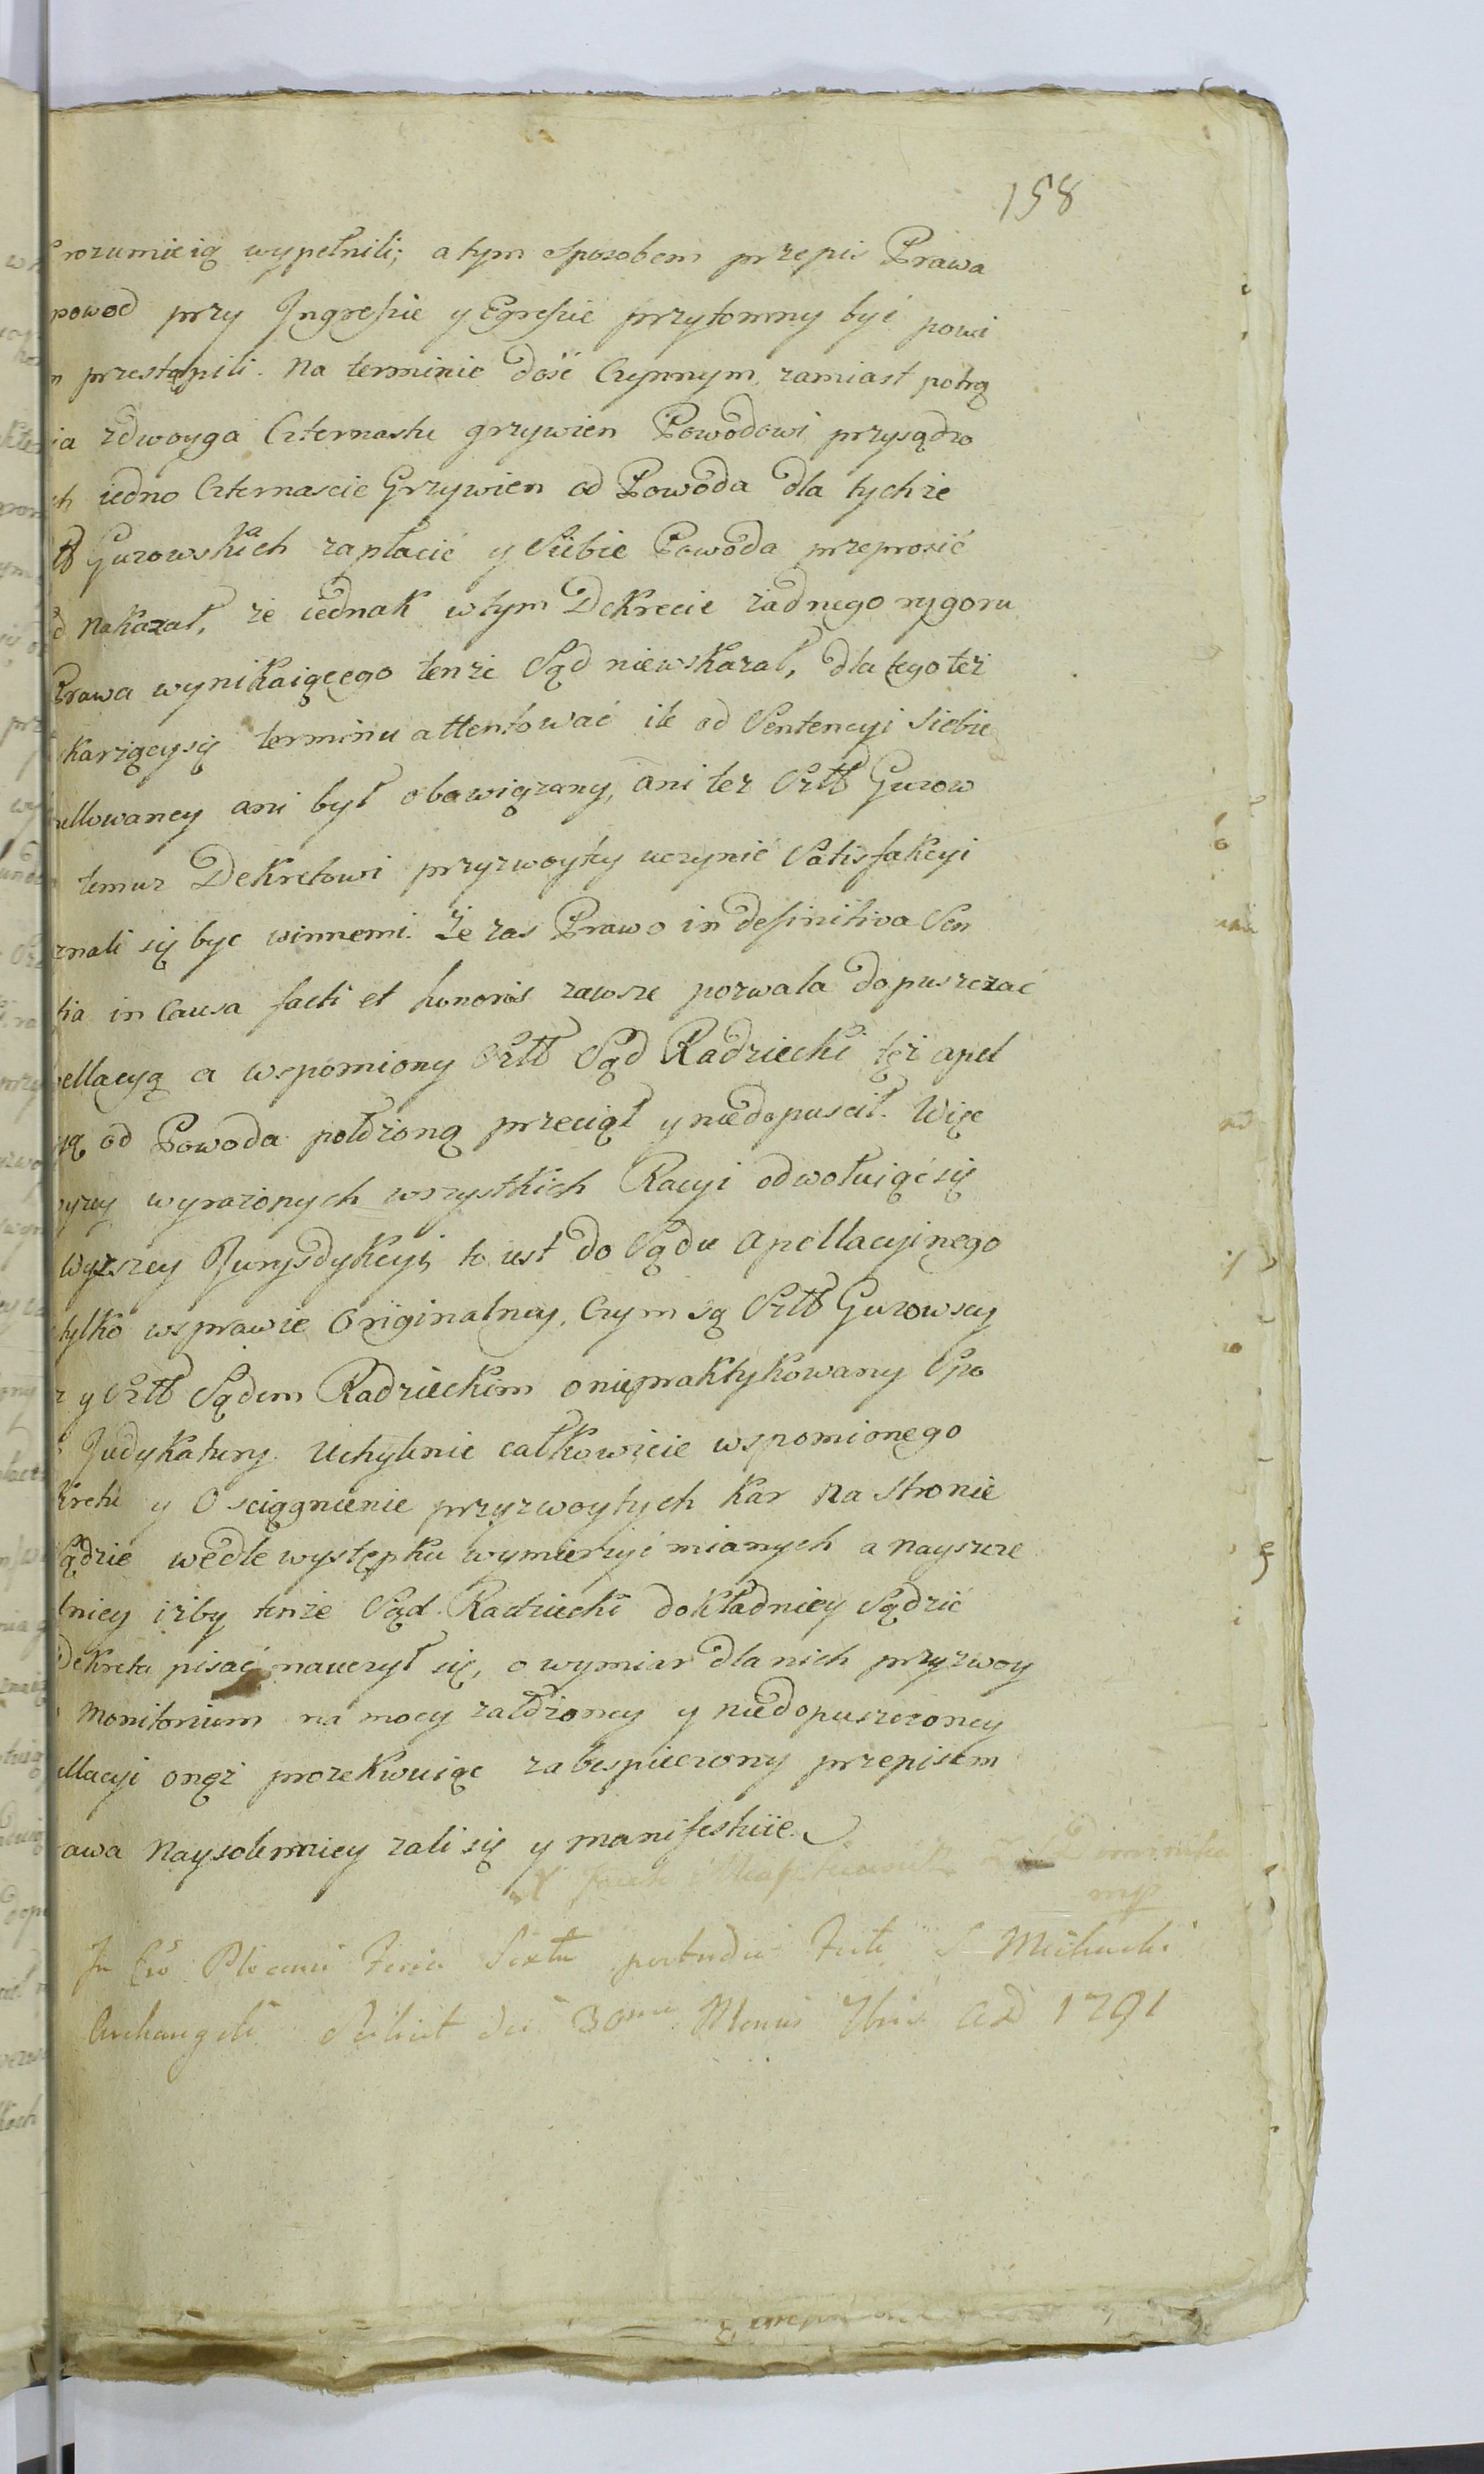 158
rozumieią wypełnili; a tym sposobem przepis Prawa
powod przy Jngressie y Egressie przytomny byi powi
n przestąpili. Na terminie dość Czynnym, zamiast potrą
ia zdwoyga Czternastu grzywien Powodowi przysądzo
ch iedno Czternascie Grzywien od Powoda dla tychże
Gurowskich zapłacić y Siebie Powoda przeprosić
d nakazał, że iednak w tym Dekrecie żadnego rygoru
Prawa wynikaiącego tenże Sąd niewskazał, dla tego też
skarżącysię terminu attentować ile od Sentencyi Siebie
ellowaney ani był obowiązany, ani też Szltt Gurow
temuz Dekretowi przyzwoyty uczynić Satisfakcyi
znali się byc winnemi. Że zas Prawo in definitiva Sen
tia in Causa facti et honoris zawsze pozwala dopuszczać
pellacyą a wspomiony Szltt Sąd Radziecki też apel
yą od Powoda położoną przeciął y niedopuscił. Więc
wyzey wyrażonych wszystkich Racyi odwołuiąc się
wyzszey Jurysdykcyi, to iest do Sądu Apellacyinego
tylko wsprawie Originalney, Czym są Szltt Gurowscy
z y Szltt Sądem Radzieckim o niepraktykowany Spo
Judykatury. Uchylenie całkowicie wspomionego
kretu y Osciągnienie przyzwoytych kar na Stronie
Sądzie wedle występku wymierzyć mianych a nayszcze
lniey iżby tenże Sąd Radziecki dokładniey Sądzić
Dekreta pisać nauczył się, o wymiar dla nich przyzwoy
Monitorium na mocy założoney y niedopuszczoney
ellacyi onęż prozekwuiąc zabespieczony przepisem
rawa Naysolenniey żali się y manifestuie.
mp
Jn Plocensi Feria Sexta postridie Festi S Michaelis
Archangeli Scilicet die 30ma Mensis 7bris AD 1791